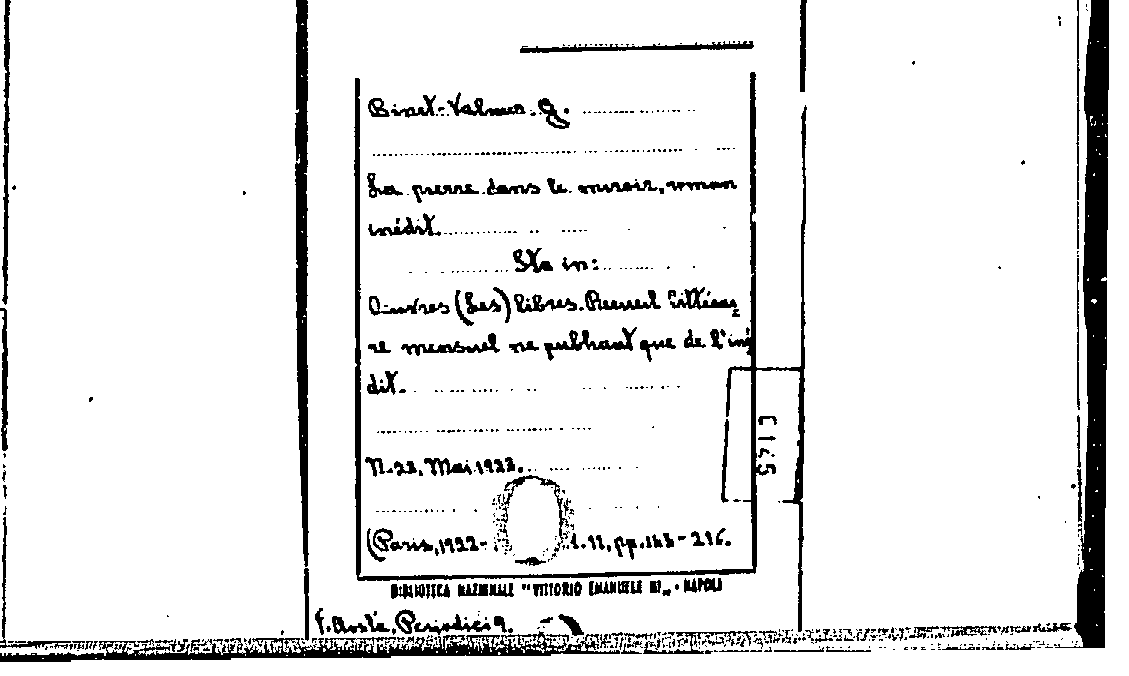 Binet-Valmer. G.
La pierre dans le miroir, roman
inédit.
Sta in:
Oeuvres (Les) libres. Recueil littérai=
re mensuel ne publiant que de l'iné
dit.
N. 23, Mai 1923.
(Paris, 1922-
pp. 145-216.
BIBLIOTECA NAZIONALE "VITTORIO EMANUELE III" - NAPOLI
F. Aosta, Periodici 9.
C 145